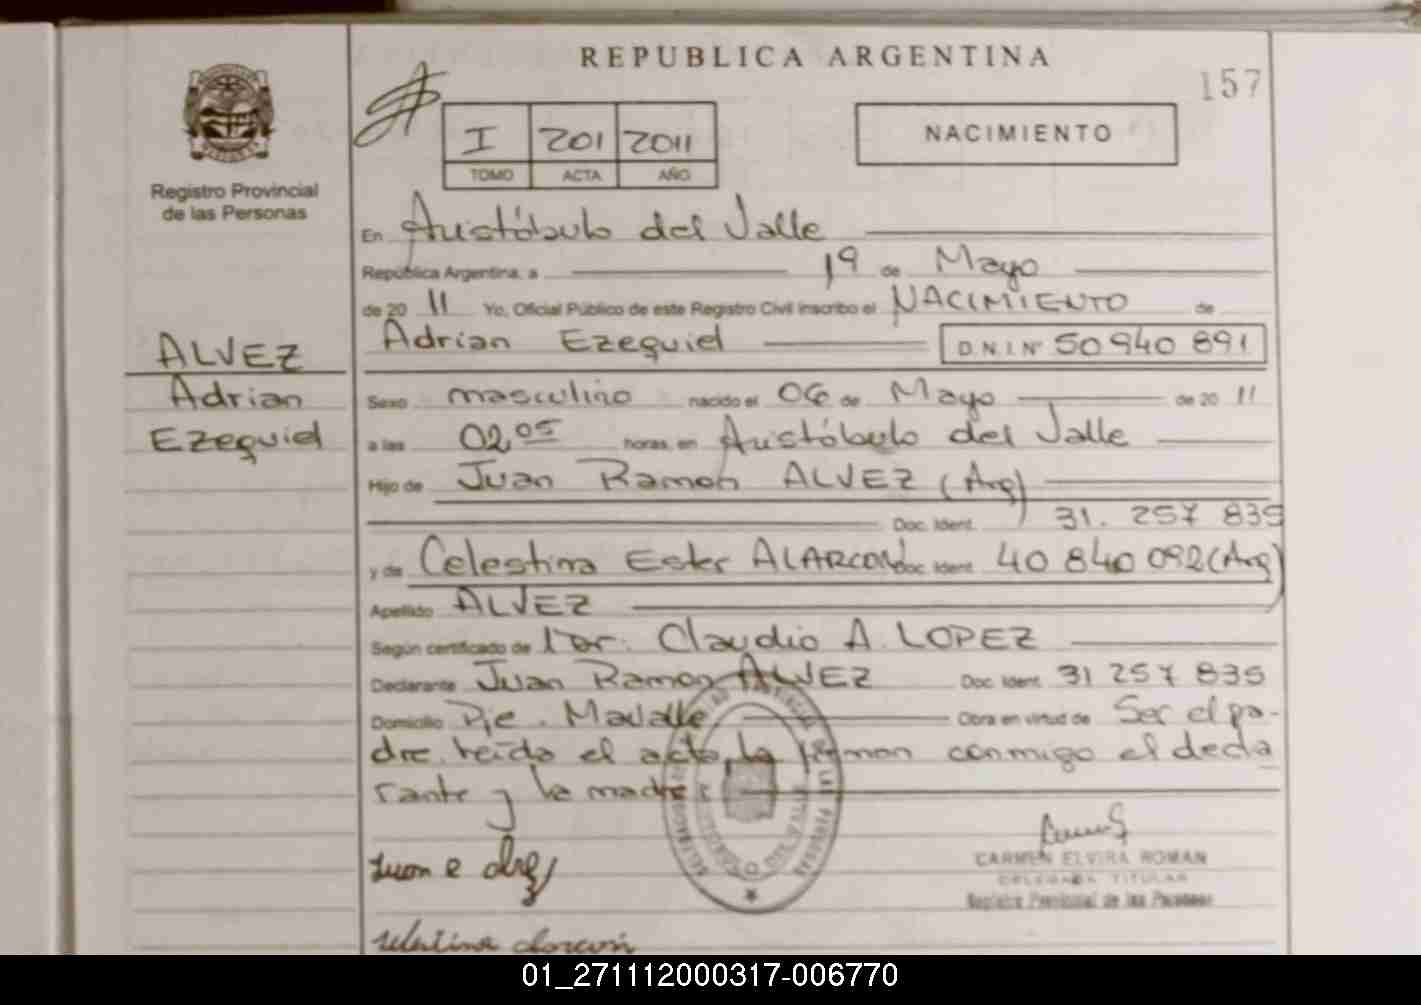 REPUBLICA ARGENTINA
157
I 201 2011
TOMO ACTA AÑO
NACIMIENTO
Registro Provincial
de las Personas
En Aristóbulo del Valle
República Argentina, a 19 de Mayo
de 2011 Yo, Oficial Público de este Registro Civil inscribo el NACIMIENTO de
Adrian Ezequiel D.N.I.Nº 50 940 891
ALVEZ
Adrian
Ezequiel
Sexo masculino nacido el 06 de Mayo de 2011
a las 02,05 horas, en Aristóbulo del Valle
Hijo de Juan Ramon ALVEZ (Arg)
Doc. Ident. 31. 257 835
y de Celestina Ester ALARCON Doc. Ident. 40 840 092 (Arg)
Apellido ALVEZ
Según certificado de Dr. Claudio A. LOPEZ
Declarante Juan Ramon ALVEZ Doc. Ident. 31 257 835
Domicilio Pje. Mavalle Obra en virtud de Ser el pa-
dre. leída el acta, la firman conmigo el decla
rante y la madre
CARMEN ELVIRA ROMAN
DELEGADA TITULAR
Registro Provincial de las Personas
01_271112000317-006770